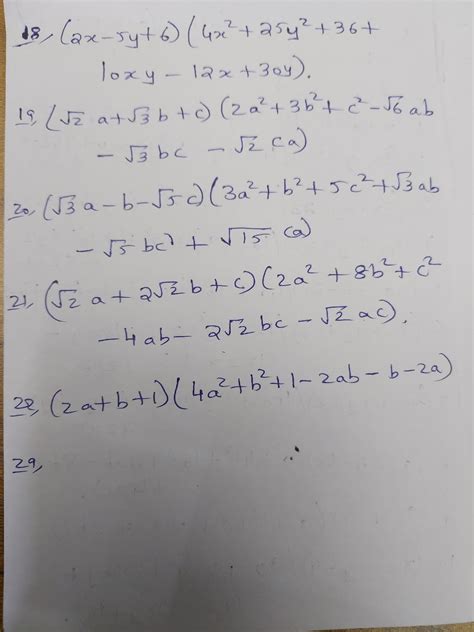 18, (2x-5y+6) (4x²+25y²+36+
10xy-12x+30y).
19, (√2 a+√3 b+c) (2a²+3b²+c²-√6 ab
-√3 bc -√2 ca)
20, (√3 a-b-√5c) (3a²+b²+5c²+√3 ab
-√5 bc + √15 ca)
21, (√2 a+2√2 b+c) (2a²+8b²+c²
-4ab-2√2 bc-√2 ac).
28, (2a+b+1) (4a²+b²+1-2ab-b-2a)
29,